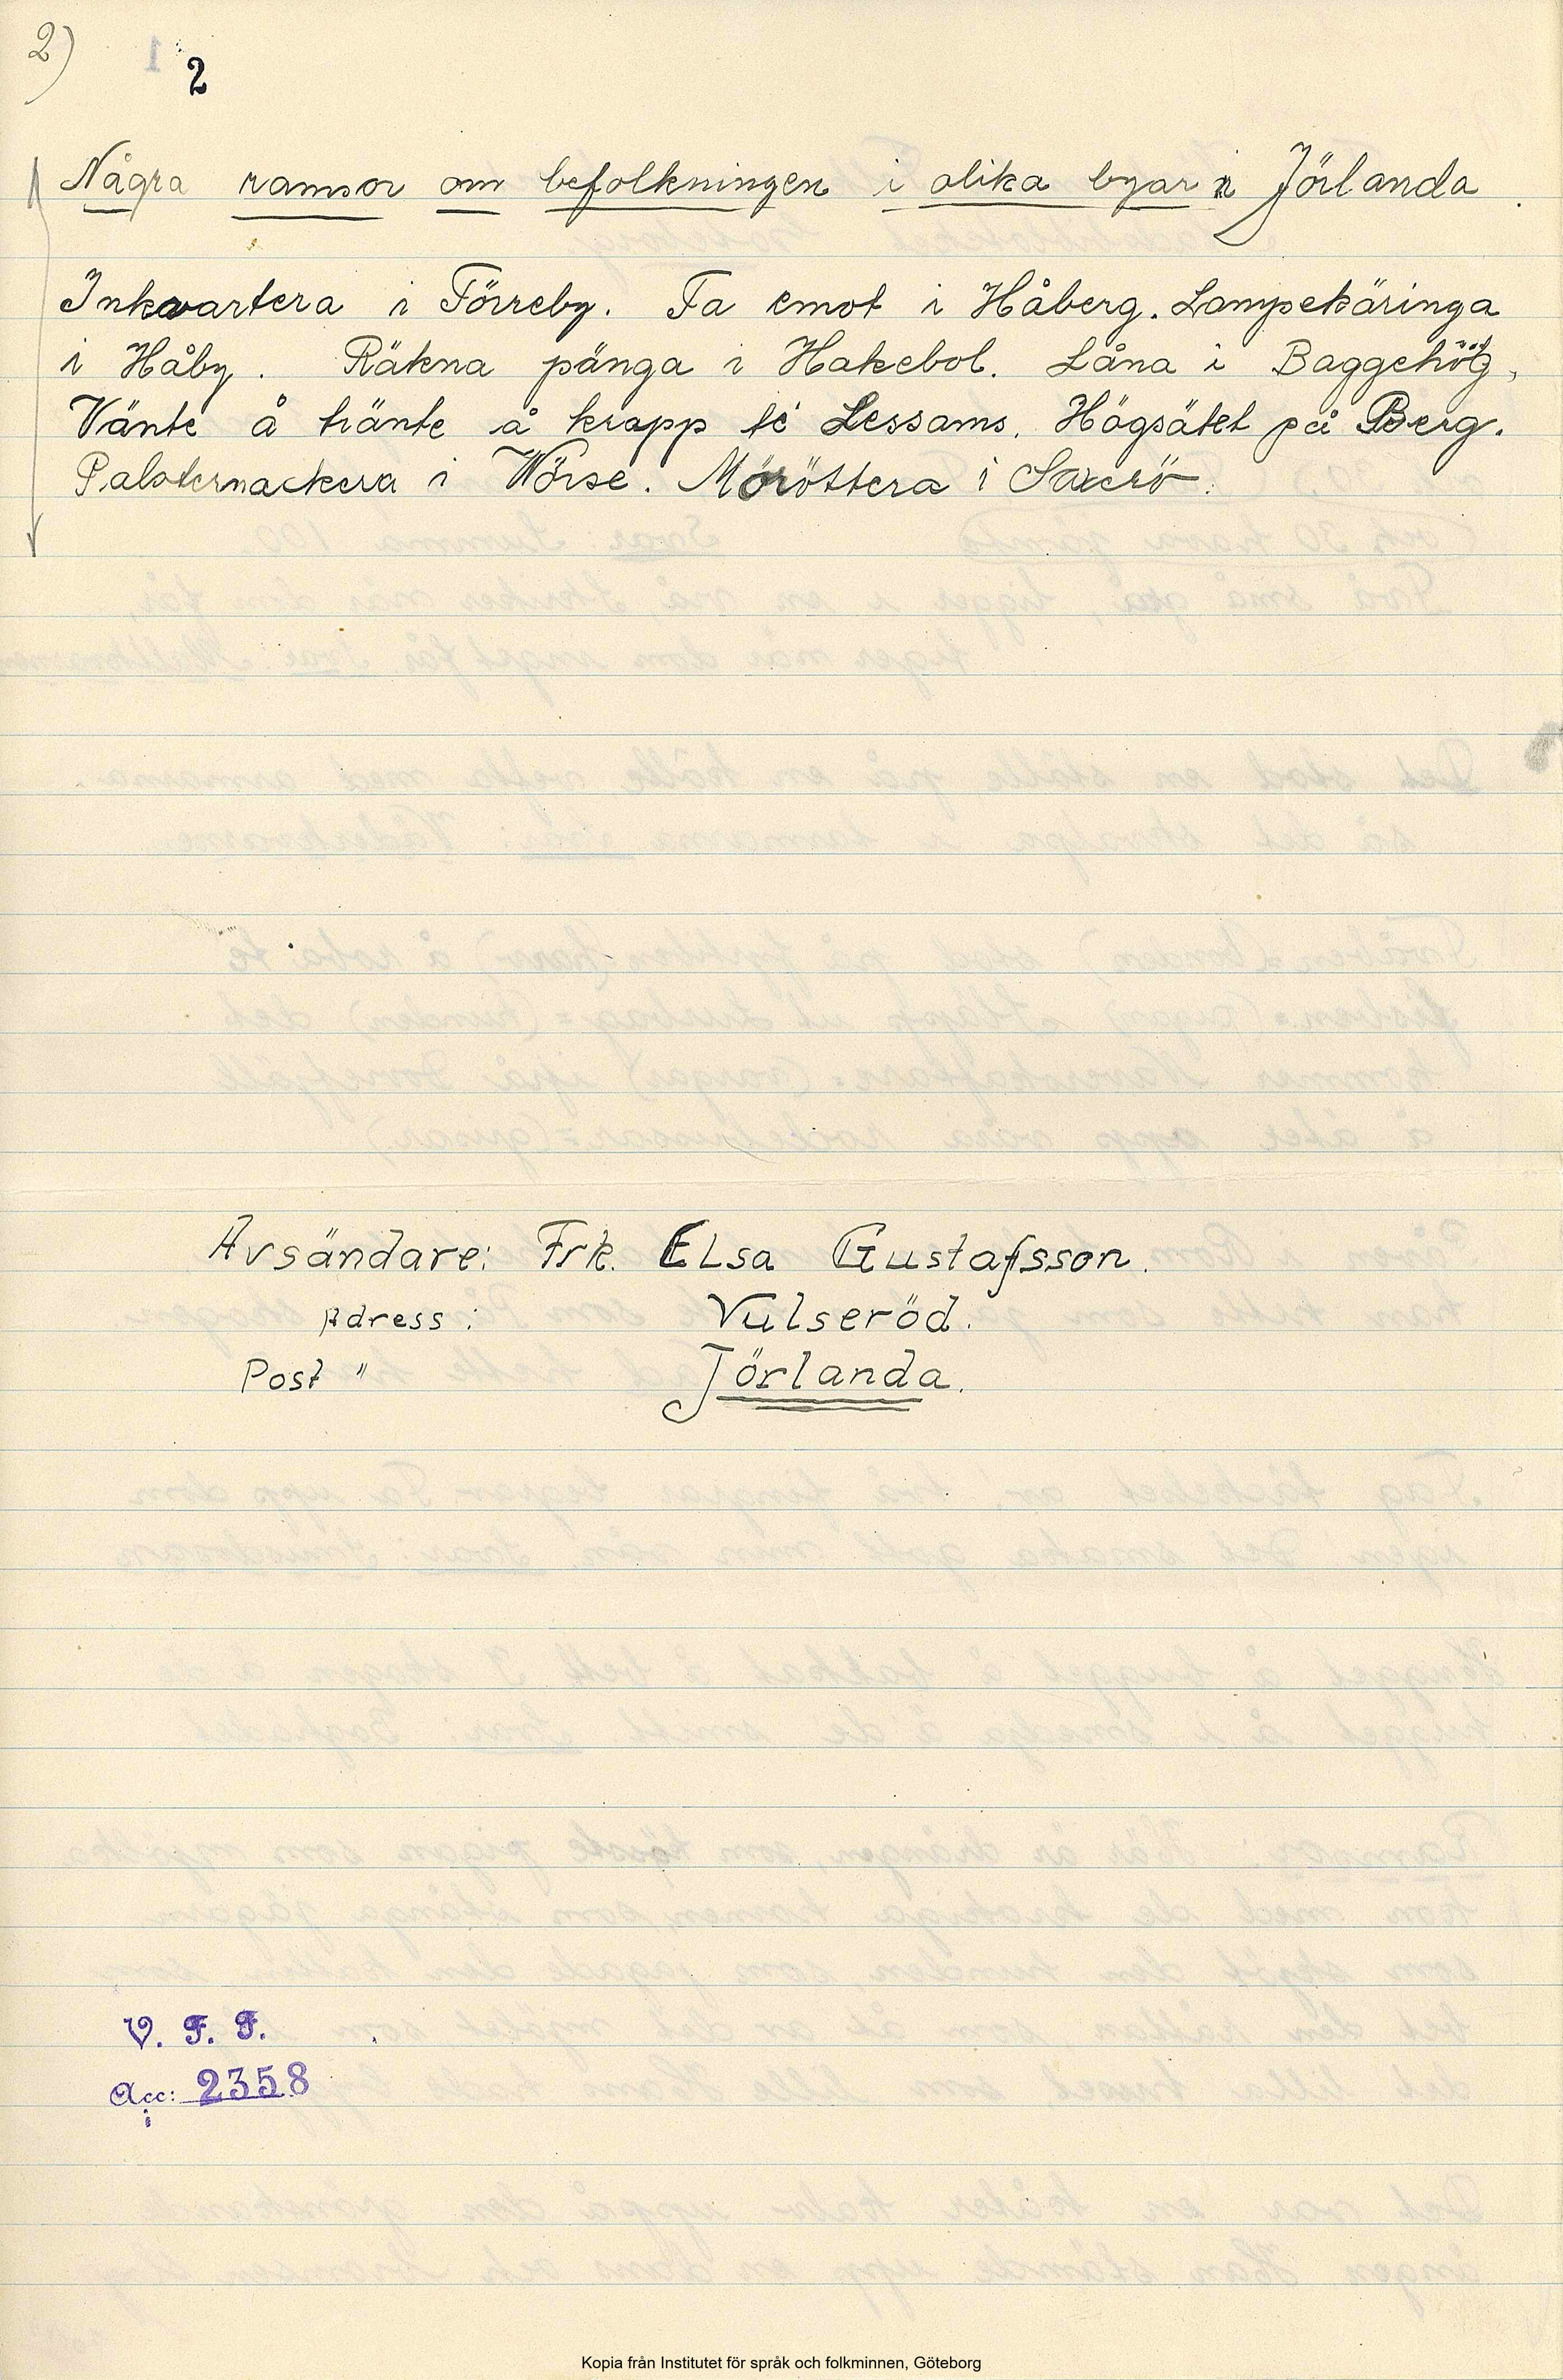 2)
2
Några ramsor om befolkningen i olika byar i Jörlanda.
Inkvartera i Törreby. Ta emot i Håberg. Lampekäringa
i Håby. Räkna pänga i Hakebol. Låna i Baggehög,
Vänte å tränte å krapp té Lessams. Högsätet på Berg.
Palsternackera i Wörse. Möröttera i Saxerö.
Avsändare: Frk. Elsa Gustafsson.
Adress: Vulseröd.
Post " Jörlanda.
V. F. F.
Acc: 2358
Kopia från Institutet för språk och folkminnen, Göteborg